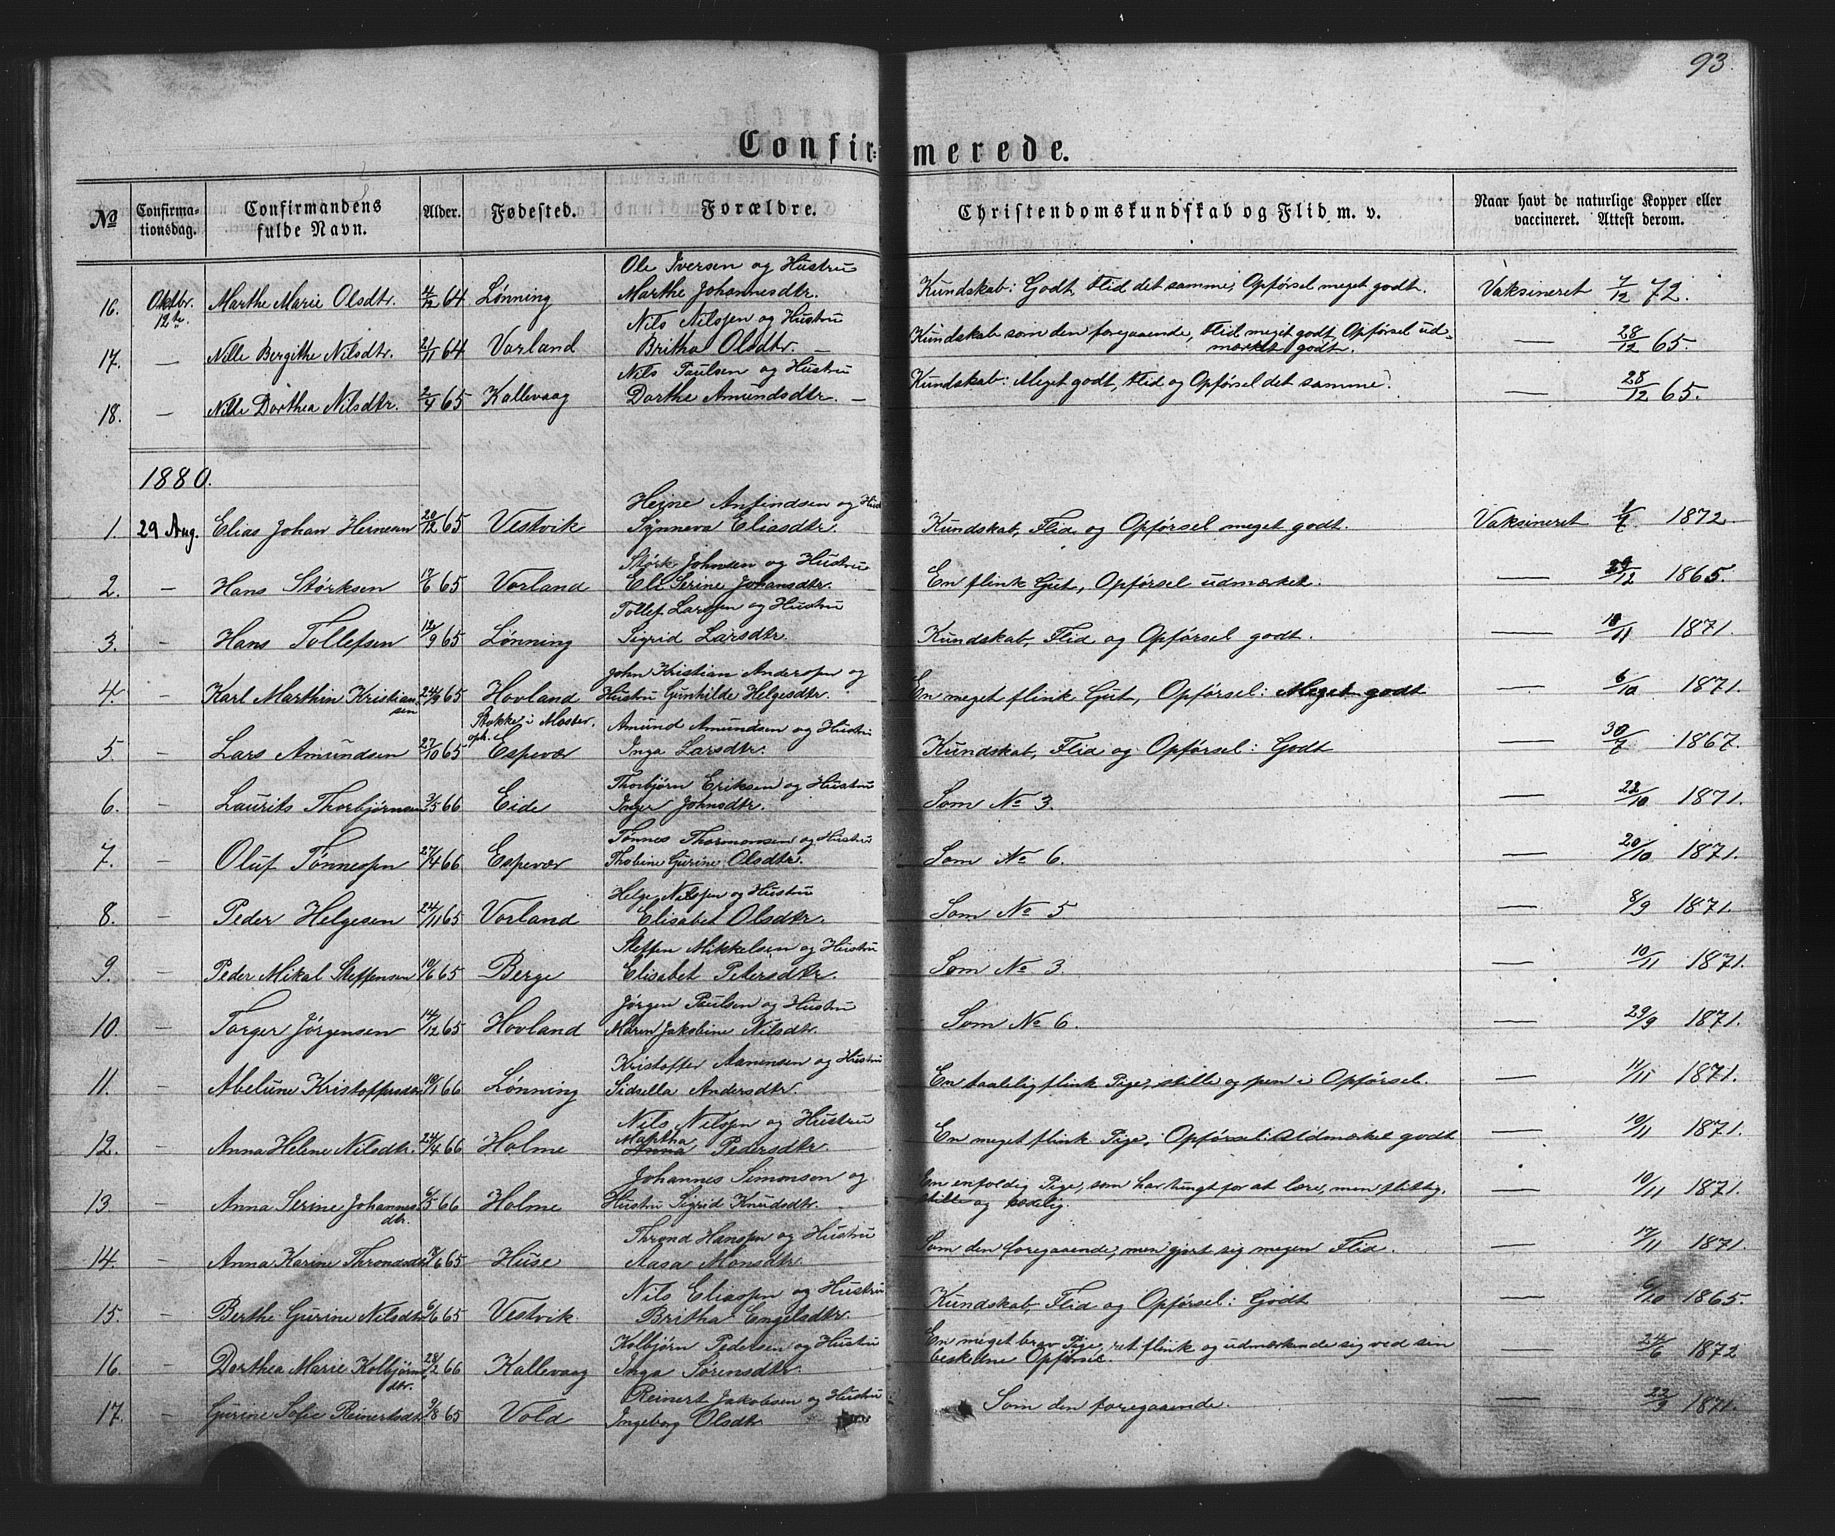 93.
Confirmerede.
No
Confirmationsdag.
Confirmandens fulde Navn.
Alder.
Fødested.
Forældre.
Christendomskundskab og Flid m. v.
Naar havt de naturlige Kopper eller vaccineret. Attest derom.
Ole Iversen og Hustru
16. Oktbr. 12te Marthe Marie Olsdtr. 64 Lønning Marthe Johannesdtr. Kundskab: Godt, Flid det samme, Opførsel meget godt. Vaksineret 7/12 72.
Nils Nilsen og Hustru
17. — Nille Bergithe Nilsdtr. 21/11 64 Vorland Britha Olsdtr. — Kundskab som den foregaaende, Flid meget godt, Opførsel ud-
mærket godt. — 28/12 65.
Nils Paulsen og Hustru
18. — Nille Dorthea Nilsdtr. 2/4 65 Kallevaag Dorthe Amundsdtr. — Kundskab: Meget godt, Flid og Opførsel det samme. — 28/12 65.
1880.
Heine Anfindsen og Hust
1. 29 Aug. Elias Johan 20/12 65 Vestvik Synneva Eliasdtr. Kundskab, Flid og Opførsel meget godt. Vaksineret 1872.
Størk Johnsen og Hustru
2. — Hans Størksen 17/6 65 Vorland Ell Serine Johansdtr. En flink Gut, Opførsel udmærket. — 1865.
Tollef Larsen og Hustru
3. — Hans Tollefsen 12/9 65 Lønning Sigrid Larsdtr. Kundskab, Flid og Opførsel godt. — 18/11 1871.
John Kristian Andersen og
4. — Karl Marthin Kristian-
sen 24/9 65 Hovland Hustru Gunhilde Helgesdtr. En meget flink Gut, Opførsel: Meget godt — 6/10 1871.
Stokke i Moster. Amund Amundsen og Hustru
5. — Lars Amundsen 27/10 65 oph. i Espevær Inga Larsdtr. Kundskab, Flid og Opførsel: Godt — 30/7 1867.
Thorbjørn Eriksen og Hustru
6. — Laurits Thorbjørnsen 3/5 66 Eide Inger Johnsdtr. Som No 3. — 22/10 1871.
Tønnes Thormonsen og Hustru
7. — Oluf Tønnesen 27/4 66 Espevær Thobine Gurine Olsdtr. Som No 6. — 20/10 1871.
Helge Nilsen og Hustru
8. — Peder Helgesen 24/11 65 Vorland Elisabet Olsdtr. Som No 5 — 8/9 1871.
Steffen Mikkelsen og Hustru
9. — Peder Mikal Steffensen 10/6 65 Berge Elisabet Petersdtr. Som No 3 — 10/11 1871.
Jørgen Paulsen og Hustru
10. — Torger Jørgensen 14/12 65 Hovland Maren Jakobine Nilsdtr. Som No 6. — 29/9 1871.
Kristoffer Aanensen og Hustru
11. — Abelune Kristoffersdtr. 10/1 66 Lønning Sidsella Andersdtr. En taalelig flink Pige, stille og pen i Opførsel. — 1871.
Nils Nilsen og Hustru
12. — Anna Helene Nilsdtr. 24/4 66 Holme Martha Anna Pedersdtr. En meget flink Pige, Opførsel: Udmærket godt — 10/11 1871.
Johannes Simonsen og
13. — Anna Serine Johannes-
dtr. 6/5 66 Holme Hustru Sigrid Knudsdtr. En enfoldig Pige, som har tungt for at lære, men flittig,
stille og sædelig. — 10/11 1871.
Thrond Hansen og Hustru
14. — Anna Karine Throndsdtr. 65 Huse Aasa Monsdtr. Som den foregaaende, men gjort sig megen Flid. — 17/11 1871.
Nils Eliassen og Hustru
15. — Berthe Gurine Nilsdtr. 6/6 65 Vestvik. Britha Engelsdtr. Kundskab, Flid og Opførsel: Godt — 6/10 1865.
Kolbjørn Pedersen og Hustru
16 — Dorthea Marie Kolbjørns-
dtr. 28/2 66 Kallevaag Inga Sørensdtr. En meget brav Pige, ret flink og udmærkende sig ved sin
beskedne Opførsel. — 24/6 1872
Reinert Jakobsen og Hustru
17. — Gurine Sofie Reinertsdtr. 9/8 65 Vold Ingeborg Olsdtr Som den foregaaende. — 22/9 1871.